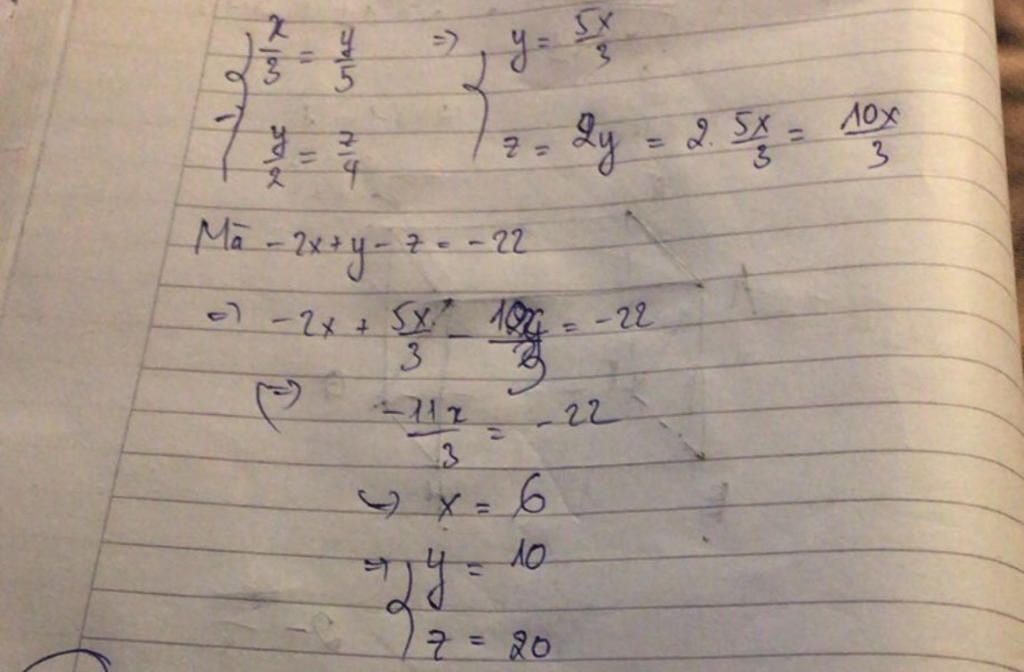 x/3 = y/5 => y = 5x/3
y/2 = z/4 z = 2y = 2. 5x/3 = 10x/3
Mà -2x+y-z = -22
=> -2x + 5x/3 - 10x/3 = -22
(=> -11x/3 = -22
=> x = 6
=> { y = 10
z = 20